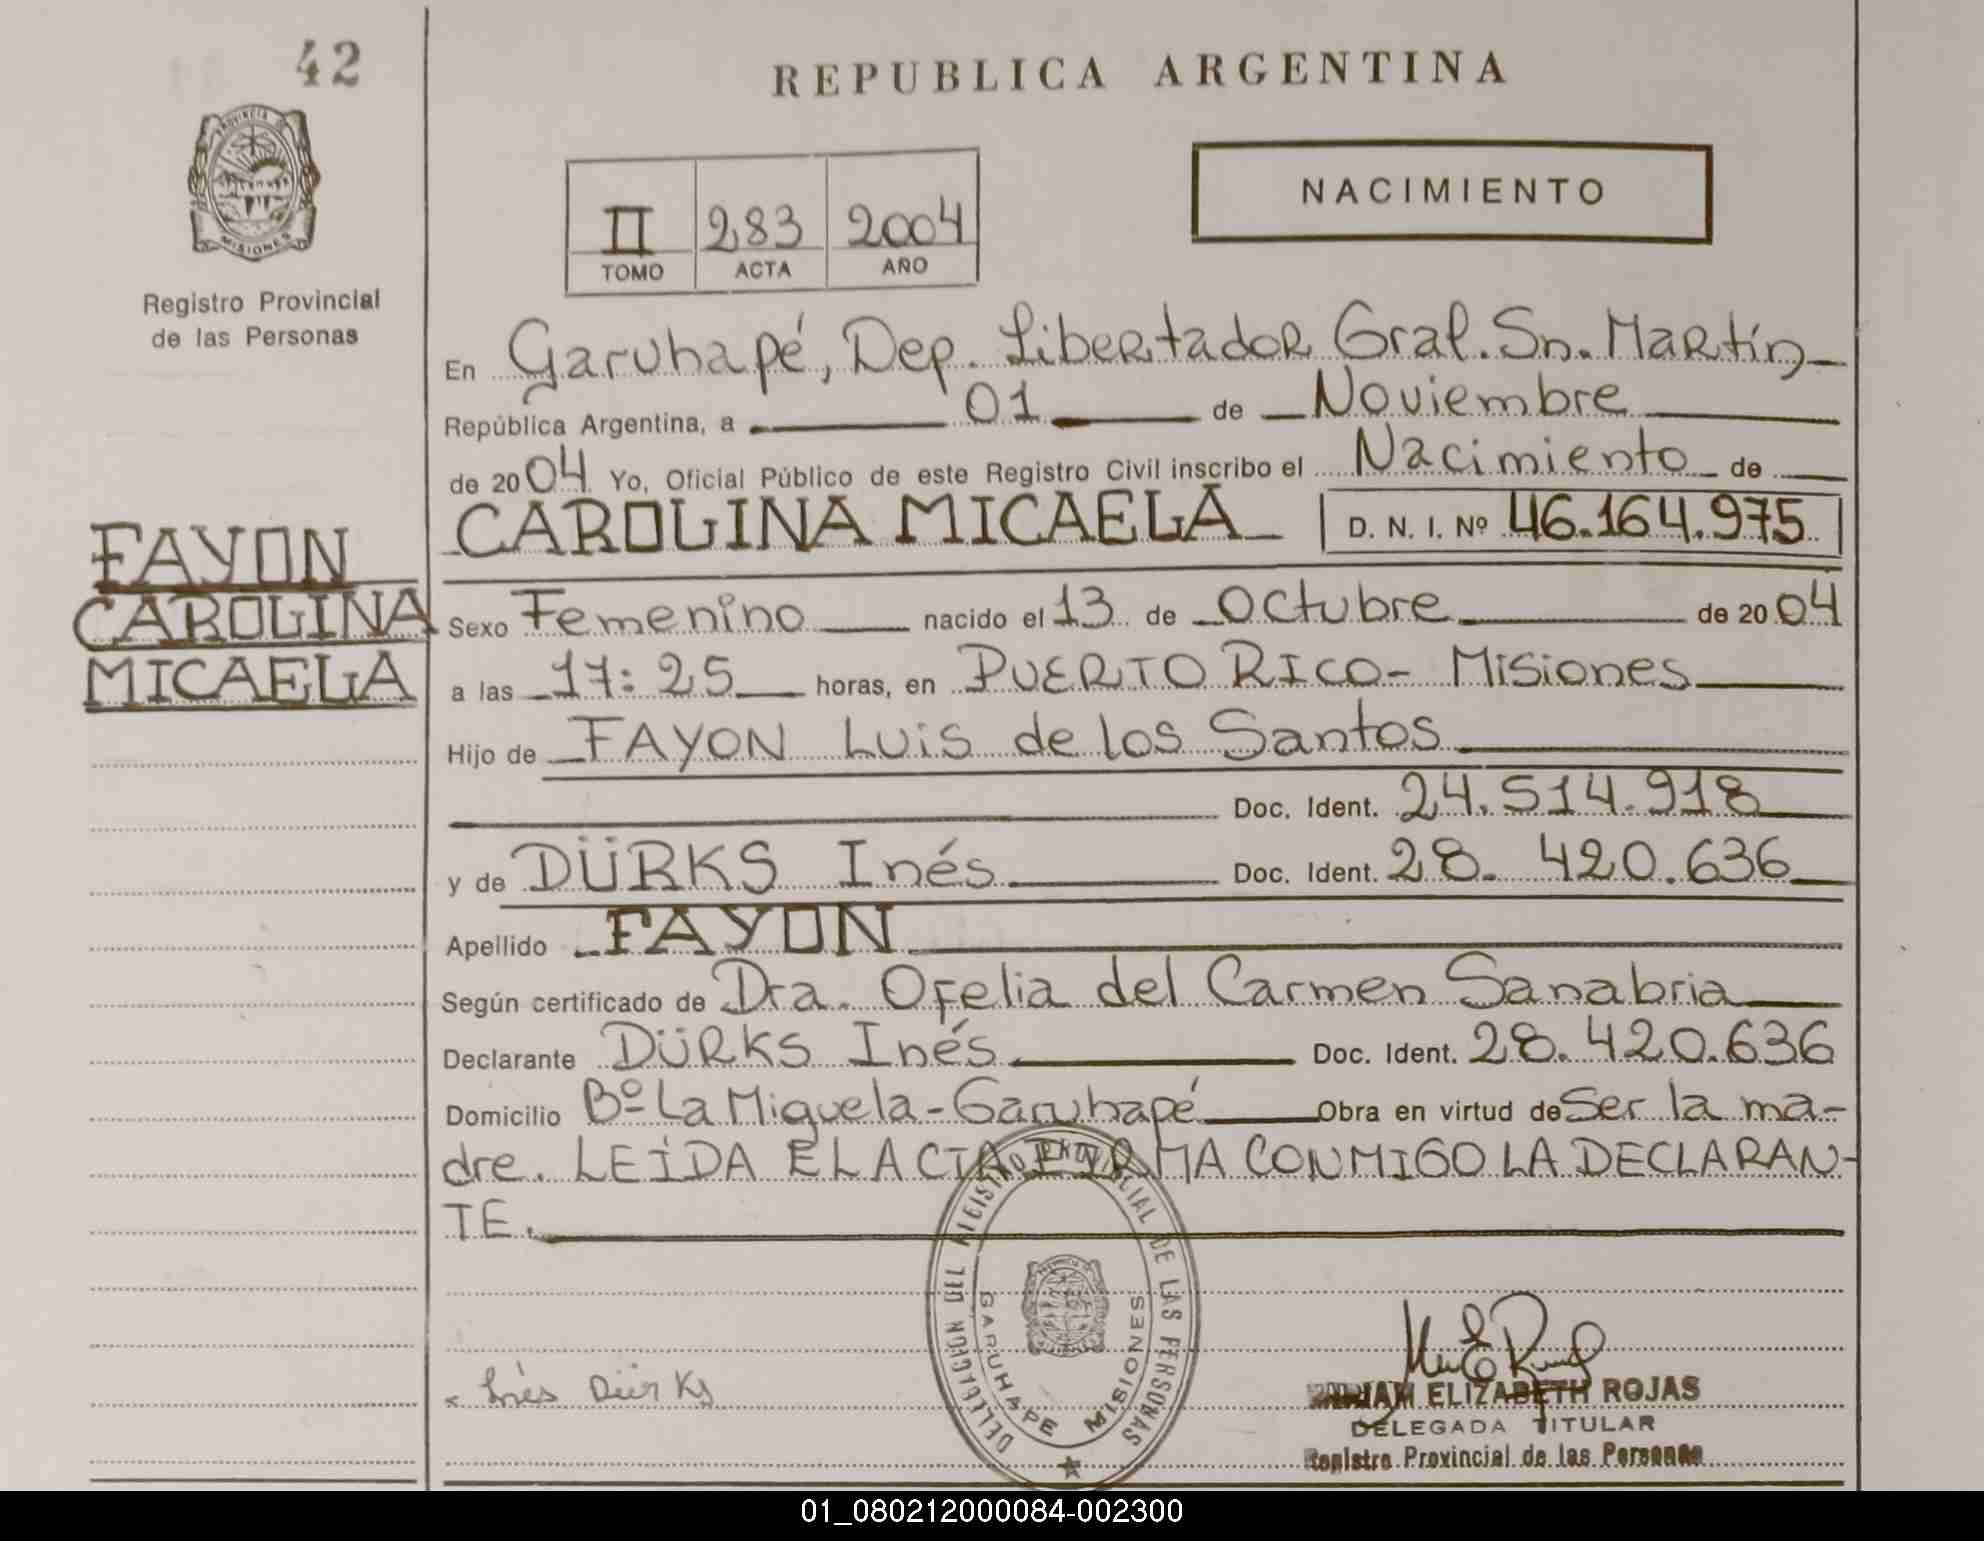 42
REPUBLICA ARGENTINA
PROVINCIA DE
MISIONES
Registro Provincial
de las Personas
II 283 2004
TOMO ACTA AÑO
NACIMIENTO
En Garuhapé, Dep. Libertador Gral. Sn. Martín
República Argentina, a 01 de Noviembre
de 2004 Yo, Oficial Público de este Registro Civil inscribo el Nacimiento de
CAROLINA MICAELA D. N. I. Nº 46.164.975
FAYON
CAROLINA
MICAELA
Sexo Femenino nacido el 13 de Octubre de 2004
a las 17:25 horas, en PUERTO RICO- Misiones
Hijo de FAYON Luis de los Santos
Doc. Ident. 24.514.918
y de DÜRKS Inés Doc. Ident. 28. 420.636
Apellido FAYON
Según certificado de Dra. Ofelia del Carmen Sanabria
Declarante DÜRKS Inés Doc. Ident. 28.420.636
Domicilio Bº La Miguela-Garuhapé Obra en virtud de Ser la ma-
dre. LEÍDA EL ACTA FIRMA CONMIGO LA DECLARAN-
TE.
DELEGACION DEL REGISTRO PROVINCIAL DE LAS PERSONAS
GARUHAPE MISIONES
Inés Dürks
ELIZABETH ROJAS
DELEGADA TITULAR
Registro Provincial de las Personas
01_080212000084-002300